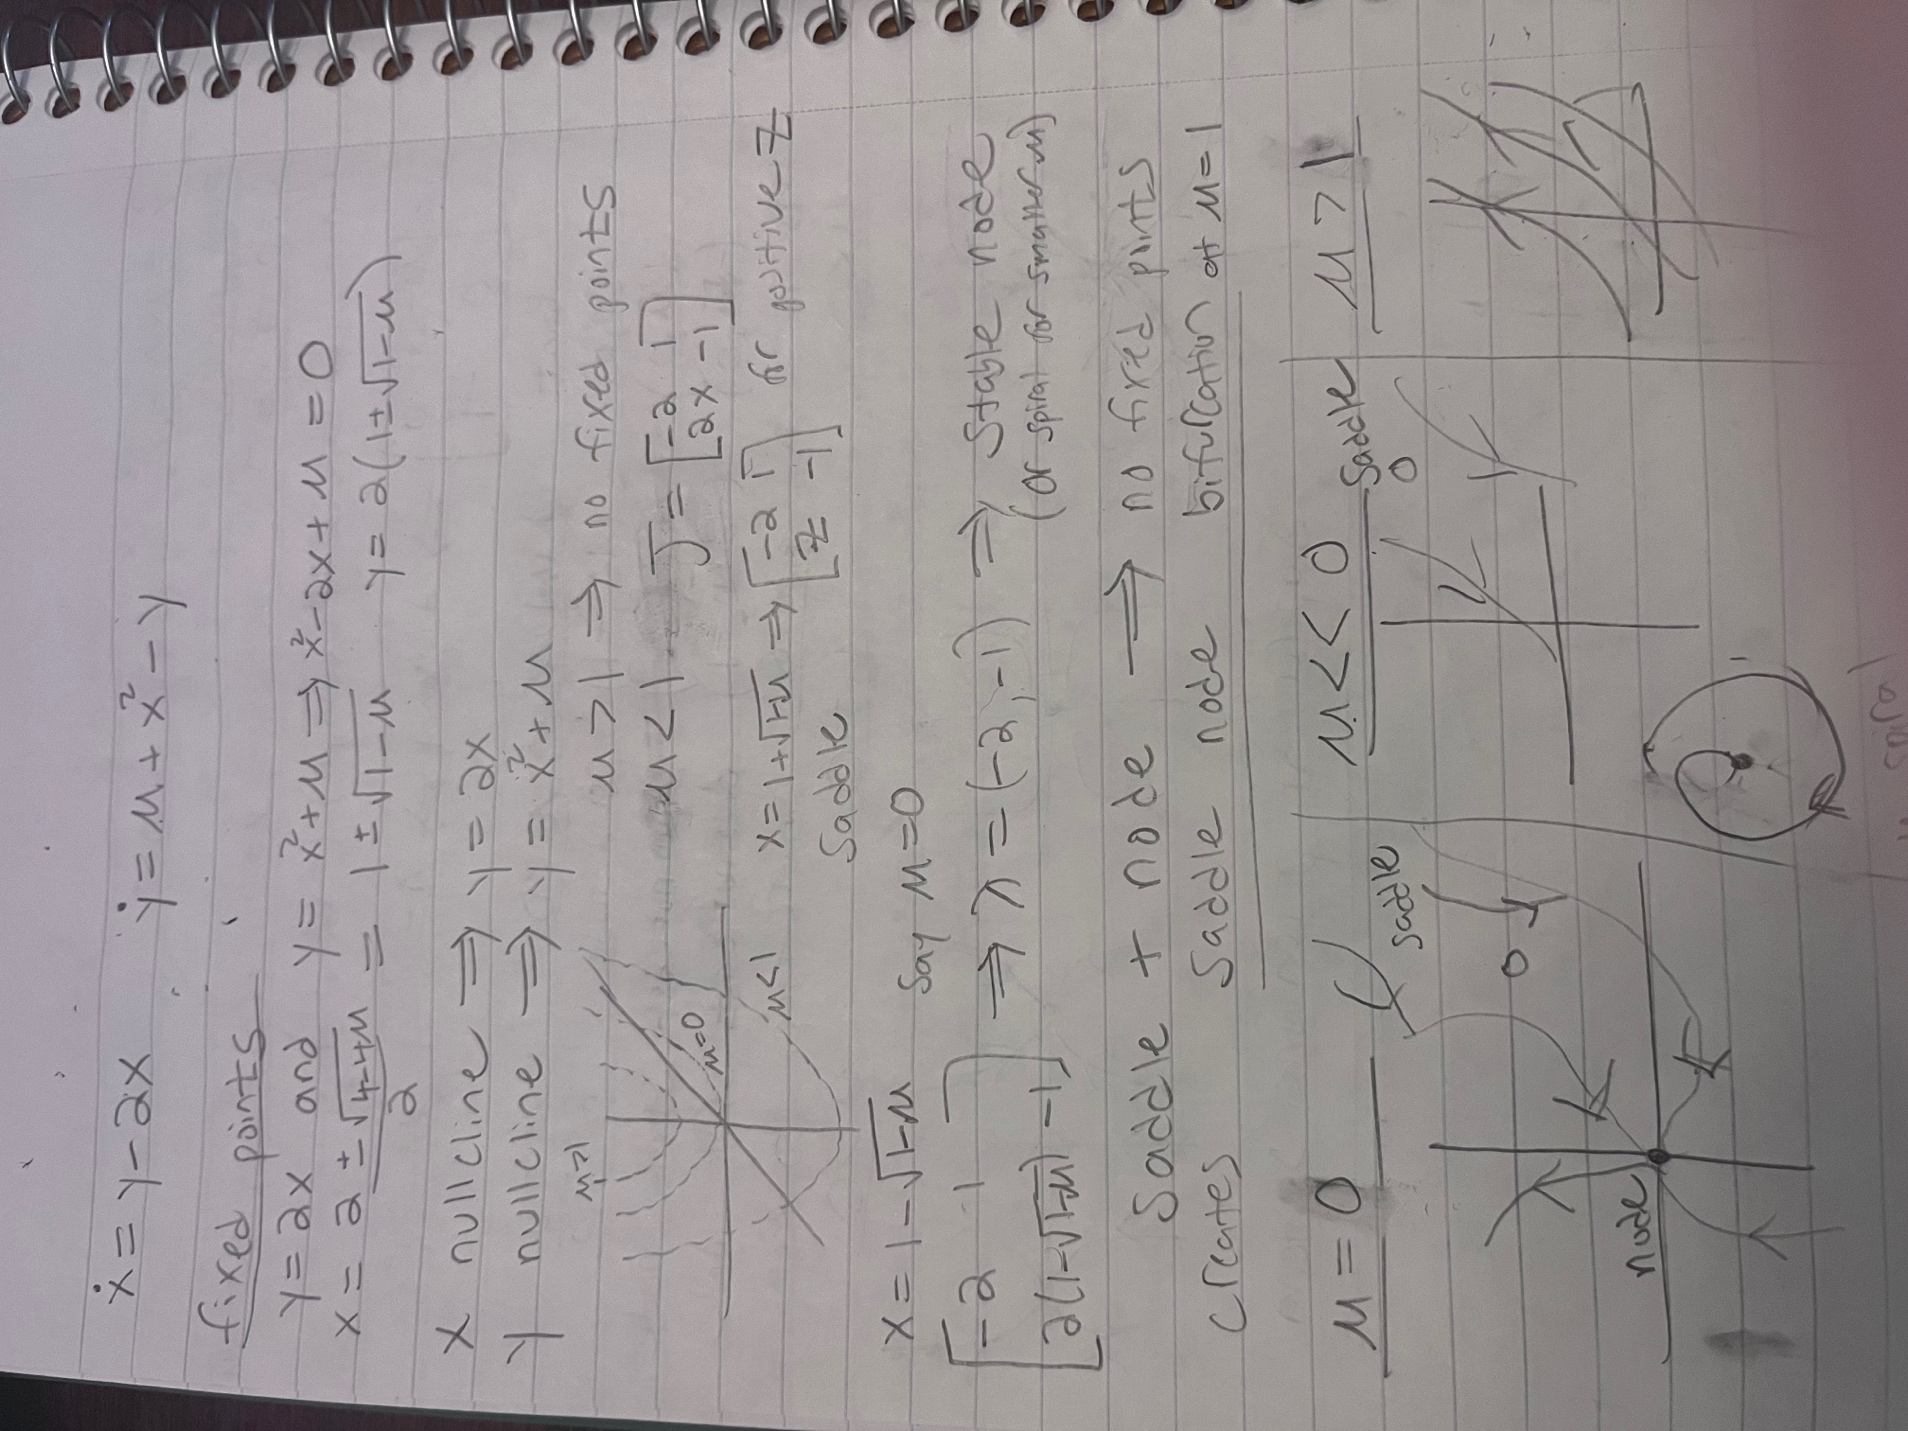 ẋ = y - 2x   ẏ = μ + x² - y
fixed points
y = 2x and y = x² + μ ⇒ x² - 2x + μ = 0
x = 2 ± √4-4μ / 2 = 1 ± √1-μ   y = 2(1 ± √1-μ)
x nullcline ⇒ y = 2x
y nullcline ⇒ y = x² + μ
μ>1
μ=0
μ<1
μ > 1 ⇒ no fixed points
μ < 1   J = [-2 1
2x -1]
x = 1+√1-μ ⇒ [-2 1
z -1] for positive z
Saddle
x = 1 - √1-μ   say μ=0
[-2 1
2(1-√1-μ) -1] ⇒ λ = (-2, -1) ⇒ stable node
(or spiral for smaller μ)
Saddle + node → no fixed points
creates saddle node bifurcation at μ=1
μ = 0
saddle
node
μ << 0
saddle
μ > 1
spiral